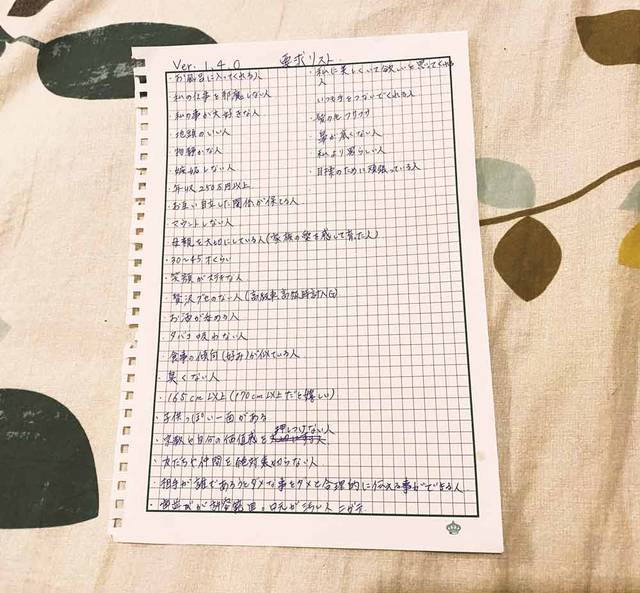 Ver. 1.4.0 要求リスト
・お風呂に入ってくれる人
・私の仕事を邪魔しない人
・私の事が大好きな人
・地頭のいい人
・物静かな人
・嫉妬しない人
・年収250万以上
・お互い自立した関係が保てる人
・マウントしない人
・母親を大切にしている人(家族の愛を感じて育った人)
・30〜45才くらい
・笑顔がステキな人
・贅沢グセのない人(高級車高級時計NG)
・お酒が呑める人
・タバコ吸わない人
・食事の傾向(好み)が似ている人
・臭くない人
・165cm以上(170cm以上だと嬉しい)
・子供っぽい一面がある
・宗教や自分の価値感を押しつけない人
・友だちや仲間を絶対裏切らない人
・相手が誰であろうとダメな事をダメと合理的に伝える事ができる人
・私に美しくいて欲しいと思ってくれる
人
・いつも手をつないでくれる人
・髪の毛フサフサ
・鼻が低くない人
・私より男らしい人
・目標のために頑張っている人